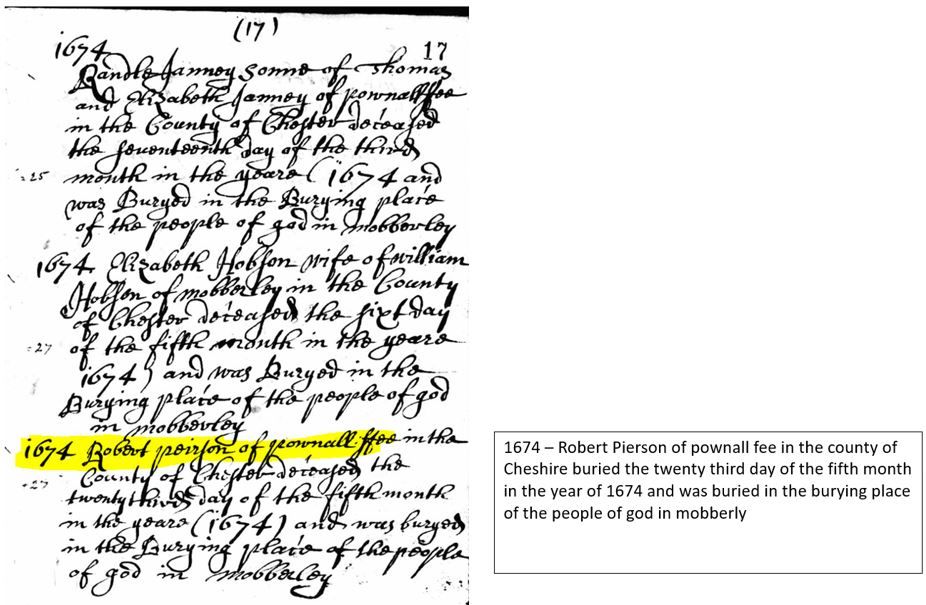 (17)
17
1674
Randle Janney sonne of Thomas
and Elizabeth Janney of pownall ffee
in the County of Chester deceased
the seventeenth day of the third
25 month in the yeare (1674 and
was Buryed in the Burying place
of the people of god in mobberley
1674 Elizabeth Hobson wife of william
Hobson of mobberley in the County
of Chester deceased the sixt day
27 of the fifth month in the yeare
1674) and was Buryed in the
Burying place of the people of god
in mobberley
1674 Robert peirson of pownall ffee in the
27 County of Chester deceased the
twenty third day of the fifth month
in the yeare (1674) and was buryed
in the Burying place of the people
of god in mobberley
1674 – Robert Pierson of pownall fee in the county of
Cheshire buried the twenty third day of the fifth month
in the year of 1674 and was buried in the burying place
of the people of god in mobberly